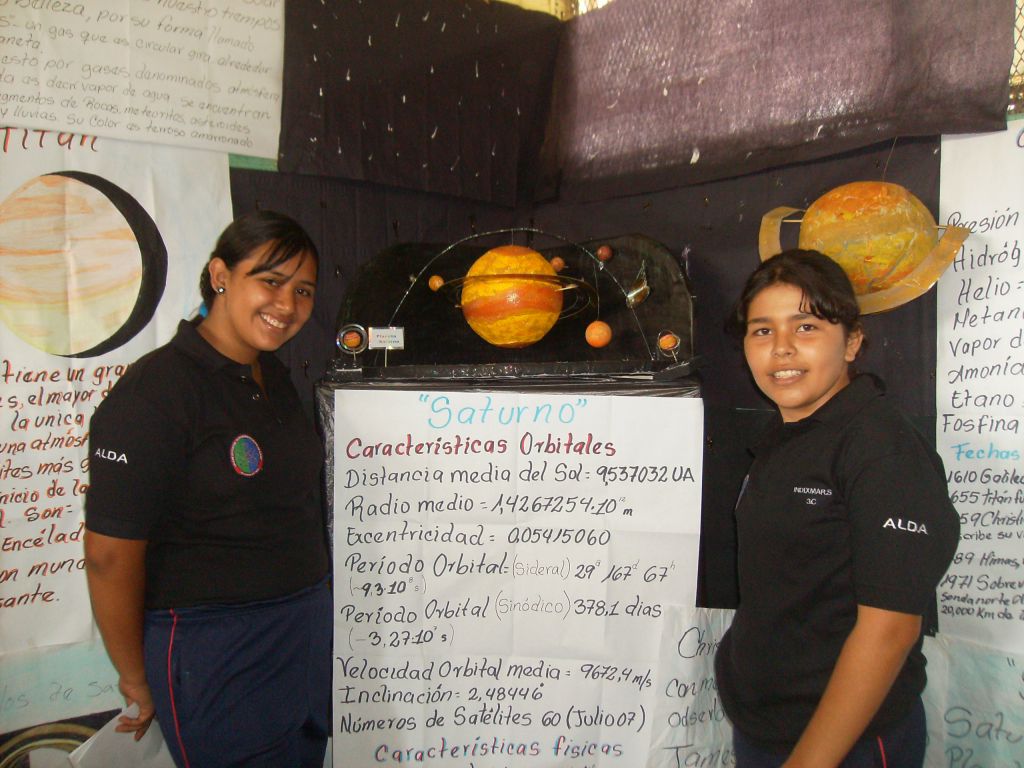 nuestro tiempos
por su forma llamado
un gas que as circular gira alrededor
esto por gases danominados atmósfera
as decir vapor de agua, se encuentran
de Rocas, meteoritos, asteroides
y lluvias. Su color as terroso amarronado
TITAN
tiene un gran
el mayor d
la unica
una atmósf
más g
inicio de la
Son:
Encélad
on mund
sante.
ALDA
"Saturno"
Características Orbitales
Distancia media del Sol = 9,537032 UA
Radio medio = 1,4267254.10¹² m
Excentricidad = 0.05415060
Período Orbital = (Sideral) 29ª 167ᵈ 67ʰ
(~9,3.10⁸ s)
Período Orbital (Sinódico) 378,1 dias
(~3,27.10⁷ s)
Velocidad Orbital media = 9672,4 m/s
Inclinación = 2,48446°
Números de Satélites 60 (Julio 07)
Características físicas
INDEXMARS
3C
ALDA
Presión
Hidróg
Helio =
Metan
Vapor d
Amonía
Etano
Fosfina
Fechas
1610 Galile
655 titán
59 Christi
scribe su
89 Mimas,
1971 Sobrev
20,000 Km de
Chris
con
Observ
James
Satu